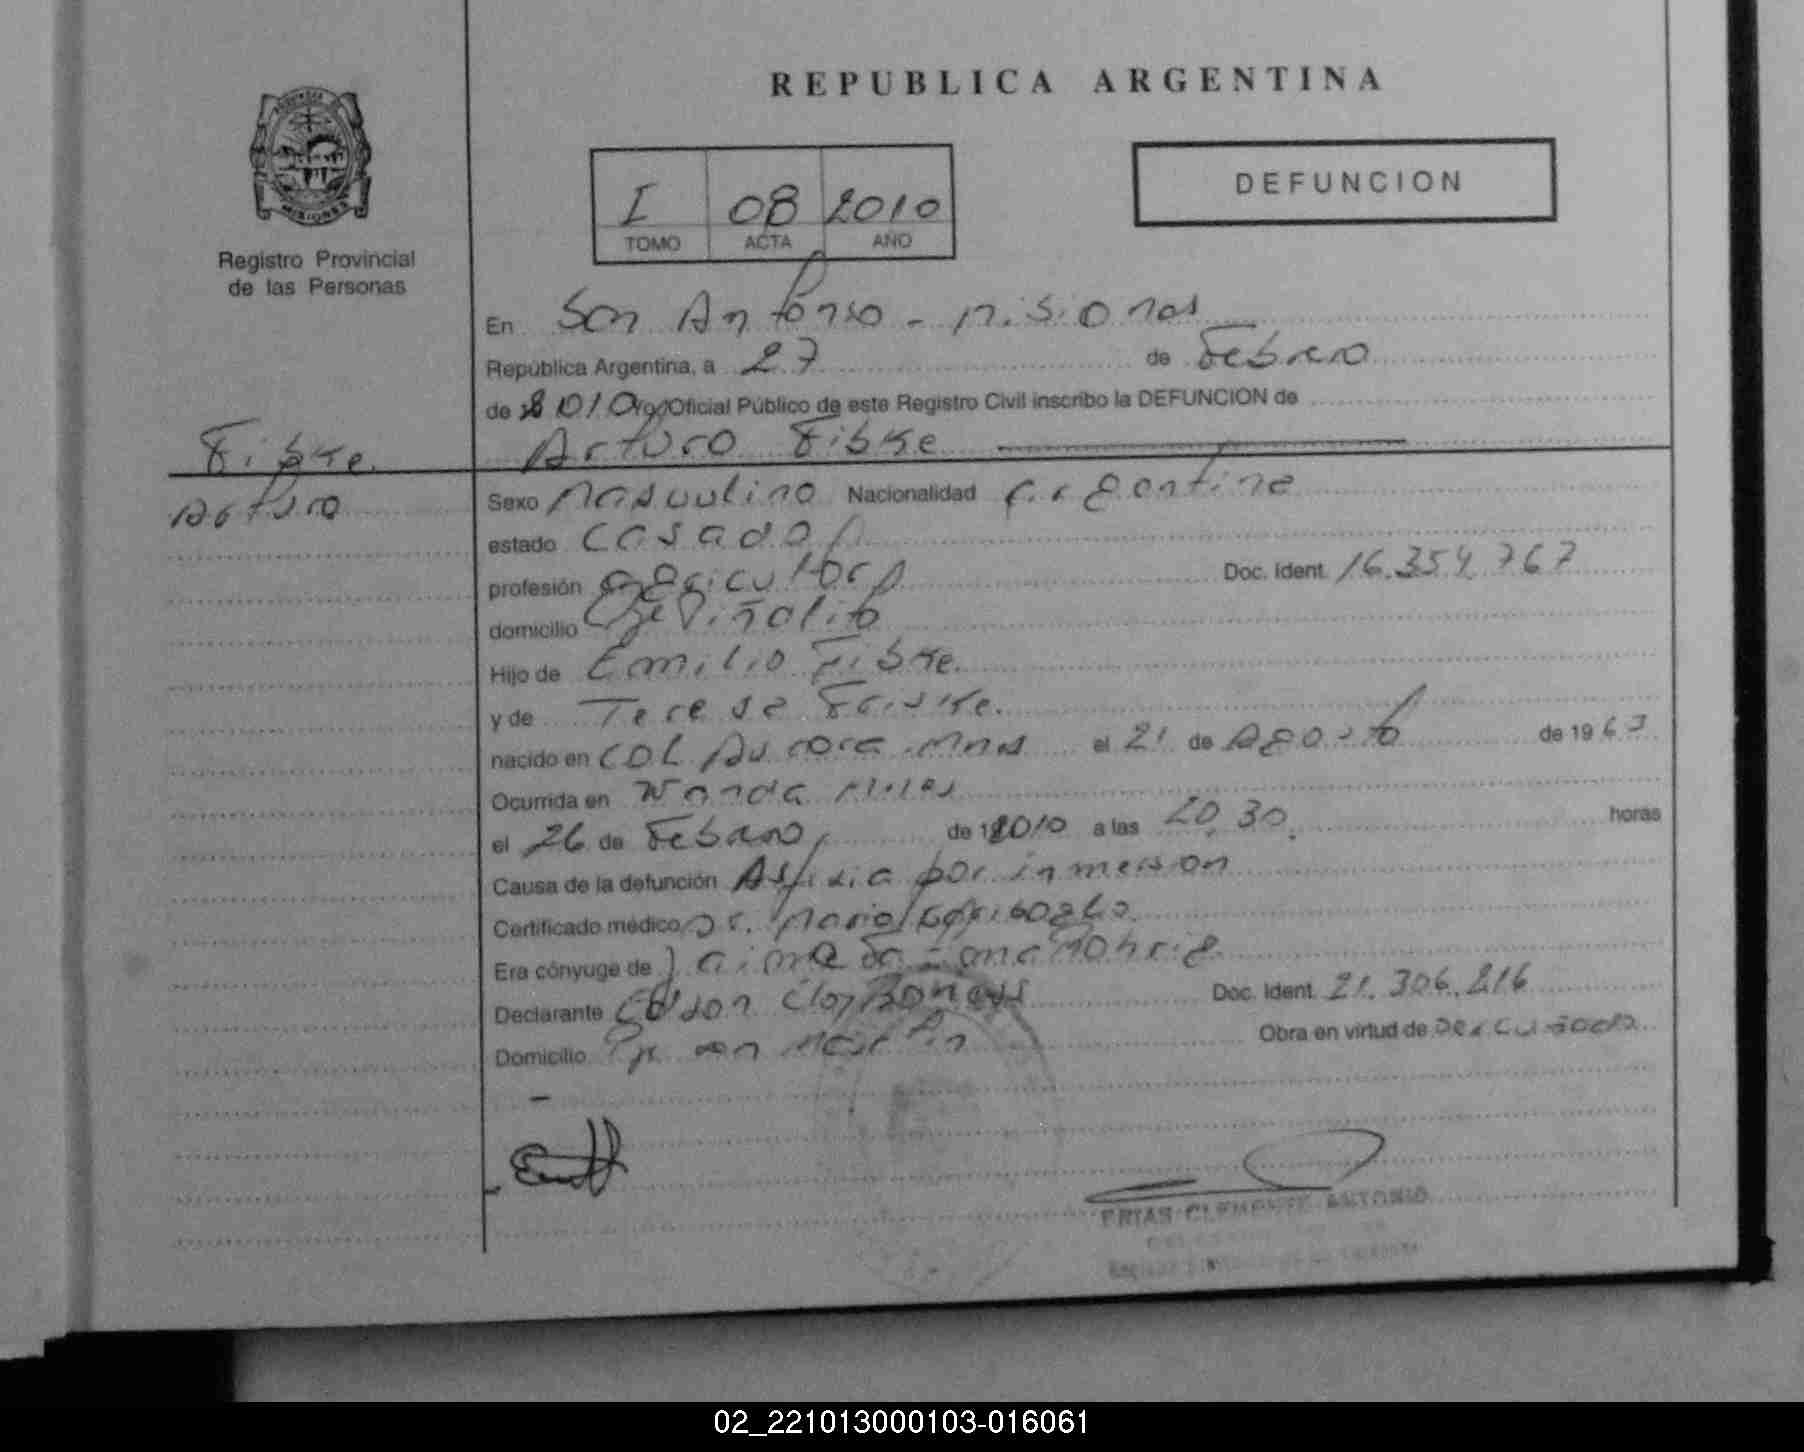 REPUBLICA ARGENTINA
PROVINCIA DE
MISIONES
Registro Provincial
de las Personas
DEFUNCION
I 08 2010
TOMO ACTA AÑO
En San Antonio - Misiones
República Argentina, a 27 de Febrero
de 2010 Yo, Oficial Público de este Registro Civil inscribo la DEFUNCION de
Fibke
Arturo
Arturo Fibke
Sexo Masculino Nacionalidad Argentina
estado Casado
profesión agricultor Doc. Ident. 16.354.767
domicilio Piñalito
Hijo de Emilio Fibke
y de Teresa Friske.
nacido en COL Aurora Mnes el 21 de Agosto de 1963
Ocurrida en Wanda Mnes
el 26 de Febrero de 2010 a las 20,30. horas
Causa de la defunción Asfixia por inmersion
Certificado médico Dr. Mario
Era cónyuge de
Declarante Edson Eloy Doc. Ident. 21.306.216
Domicilio san Martin Obra en virtud de
FRIAS CLEMENTE ANTONIO
02_221013000103-016061